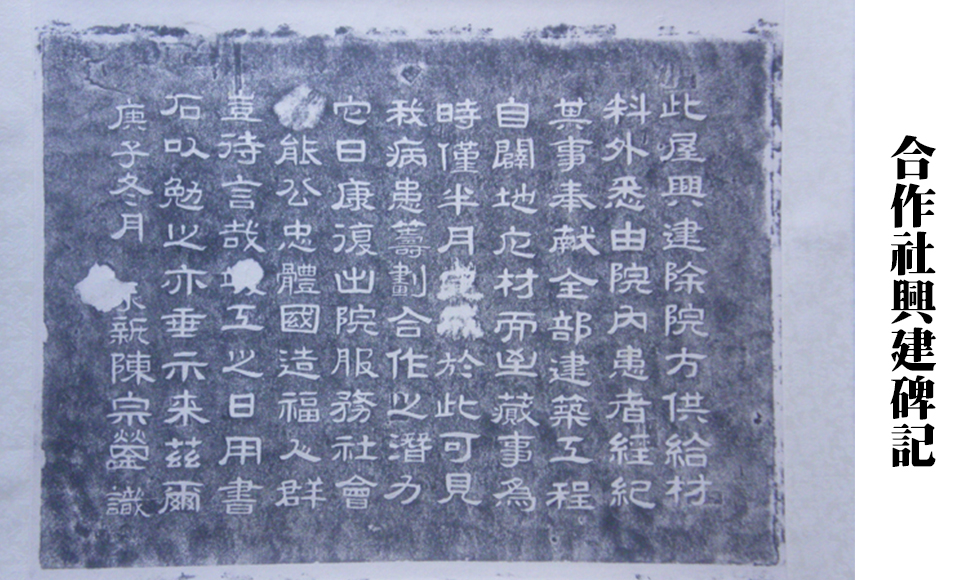 合作社興建碑記
此屋興建除院方供給材
料外悉由院內患者經紀
其事奉獻全部建築工程
自闢地庀材而至蕆事為
時僅半月於此可見
我病患籌劃合作之潛力
它日康復出院服務社會
能公忠體國造福人群
豈待言哉工之日用書
石以勉之亦垂示来茲爾
庚子冬月 新陳宗鎣識